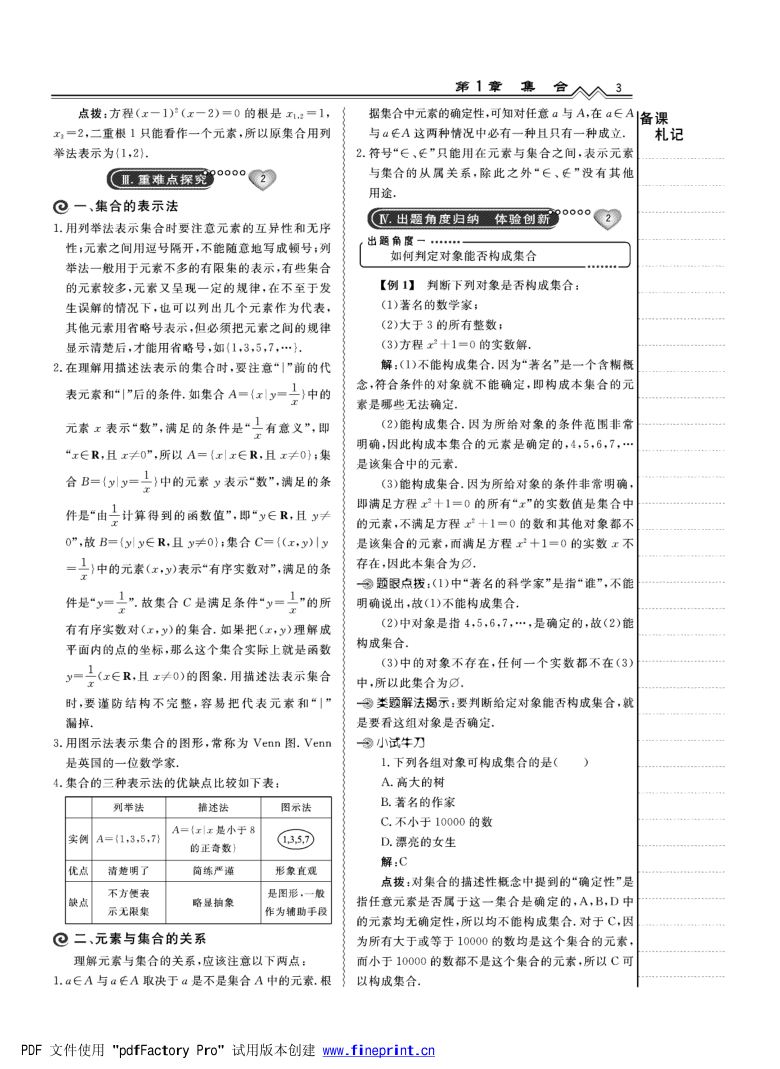 第1章 集 合 3
点拨:方程(x-1)²(x-2)=0 的根是 x₁,₂=1,
x₃=2,二重根 1 只能看作一个元素,所以原集合用列
举法表示为{1,2}.
Ⅲ.重难点探究 2
一、集合的表示法
1.用列举法表示集合时要注意元素的互异性和无序
性;元素之间用逗号隔开,不能随意地写成顿号;列
举法一般用于元素不多的有限集的表示,有些集合
的元素较多,元素又呈现一定的规律,在不至于发
生误解的情况下,也可以列出几个元素作为代表,
其他元素用省略号表示,但必须把元素之间的规律
显示清楚后,才能用省略号,如{1,3,5,7,…}.
2.在理解用描述法表示的集合时,要注意“|”前的代
表元素和“|”后的条件.如集合 A={x|y=1/x}中的
元素 x 表示“数”,满足的条件是“1/x有意义”,即
“x∈R,且 x≠0”,所以 A={x|x∈R,且 x≠0};集
合 B={y|y=1/x}中的元素 y 表示“数”,满足的条
件是“由1/x计算得到的函数值”,即“y∈R,且 y≠
0”,故 B={y|y∈R,且 y≠0};集合 C={(x,y)|y
=1/x}中的元素(x,y)表示“有序实数对”,满足的条
件是“y=1/x”.故集合 C 是满足条件“y=1/x”的所
有有序实数对(x,y)的集合.如果把(x,y)理解成
平面内的点的坐标,那么这个集合实际上就是函数
y=1/x(x∈R,且 x≠0)的图象.用描述法表示集合
时,要谨防结构不完整,容易把代表元素和“|”
漏掉.
3.用图示法表示集合的图形,常称为 Venn 图.Venn
是英国的一位数学家.
4.集合的三种表示法的优缺点比较如下表:
列举法 描述法 图示法
实例 A={1,3,5,7} A={x|x 是小于 8
的正奇数} 1,3,5,7
优点 清楚明了 简练严谨 形象直观
缺点 不方便表
示无限集 略显抽象 是图形,一般
作为辅助手段
二、元素与集合的关系
理解元素与集合的关系,应该注意以下两点:
1.a∈A 与 a∉A 取决于 a 是不是集合 A 中的元素.根
据集合中元素的确定性,可知对任意 a 与 A,在 a∈A
与 a∉A 这两种情况中必有一种且只有一种成立.
2.符号“∈、∉”只能用在元素与集合之间,表示元素
与集合的从属关系,除此之外“∈、∉”没有其他
用途.
Ⅳ.出题角度归纳 体验创新 2
出题角度一
如何判定对象能否构成集合
【例 1】 判断下列对象是否构成集合:
(1)著名的数学家;
(2)大于 3 的所有整数;
(3)方程 x²+1=0 的实数解.
解:(1)不能构成集合.因为“著名”是一个含糊概
念,符合条件的对象就不能确定,即构成本集合的元
素是哪些无法确定.
(2)能构成集合.因为所给对象的条件范围非常
明确,因此构成本集合的元素是确定的,4,5,6,7,…
是该集合中的元素.
(3)能构成集合.因为所给对象的条件非常明确,
即满足方程 x²+1=0 的所有“x”的实数值是集合中
的元素,不满足方程 x²+1=0 的数和其他对象都不
是该集合的元素,而满足方程 x²+1=0 的实数 x 不
存在,因此本集合为∅.
题眼点拨:(1)中“著名的科学家”是指“谁”,不能
明确说出,故(1)不能构成集合.
(2)中对象是指 4,5,6,7,…,是确定的,故(2)能
构成集合.
(3)中的对象不存在,任何一个实数都不在(3)
中,所以此集合为∅.
类题解法揭示:要判断给定对象能否构成集合,就
是要看这组对象是否确定.
小试牛刀
1.下列各组对象可构成集合的是( )
A.高大的树
B.著名的作家
C.不小于 10000 的数
D.漂亮的女生
解:C
点拨:对集合的描述性概念中提到的“确定性”是
指任意元素是否属于这一集合是确定的,A,B,D 中
的元素均无确定性,所以均不能构成集合.对于 C,因
为所有大于或等于 10000 的数均是这个集合的元素,
而小于 10000 的数都不是这个集合的元素,所以 C 可
以构成集合.
备课
札记
PDF 文件使用 "pdfFactory Pro" 试用版本创建 www.fineprint.cn